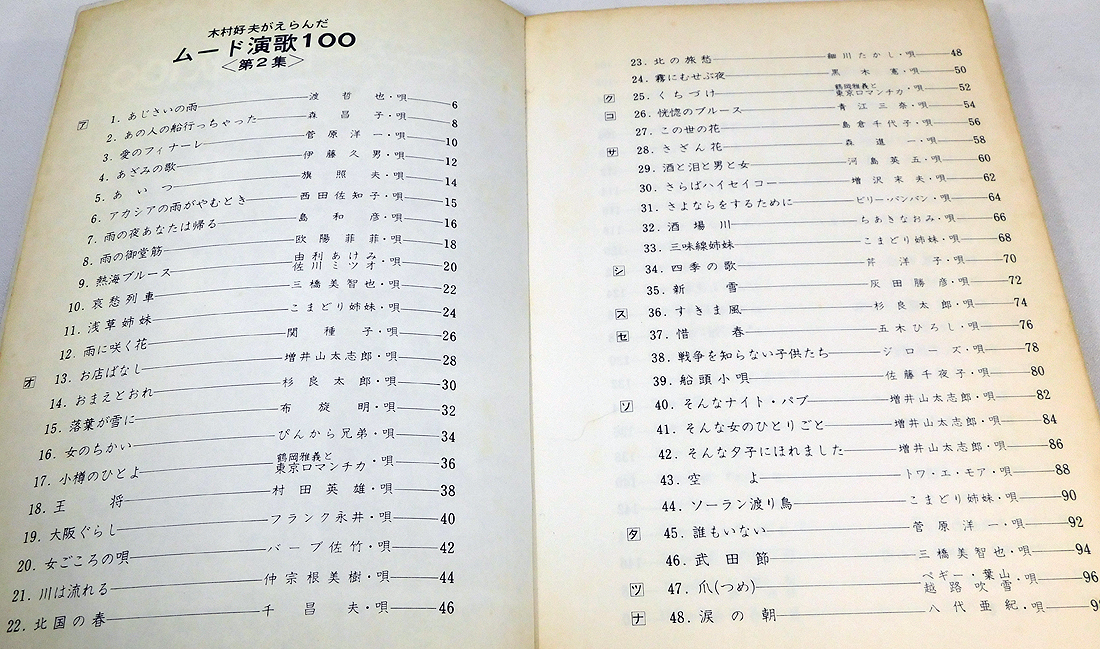 木村好夫がえらんだ
ムード演歌100
〈第2集〉
ア 1. あじさいの雨 渡哲也・唄 6
2. あの人の船行っちゃった 森昌子・唄 8
3. 愛のフィナーレ 菅原洋一・唄 10
4. あざみの歌 伊藤久男・唄 12
5. あいつ 旗照夫・唄 14
6. アカシアの雨がやむとき 西田佐知子・唄 15
7. 雨の夜あなたは帰る 島和彦・唄 16
8. 雨の御堂筋 欧陽菲菲・唄 18
9. 熱海ブルース 由利あけみ 佐川ミツオ・唄 20
10. 哀愁列車 三橋美智也・唄 22
11. 浅草姉妹 こまどり姉妹・唄 24
12. 雨に咲く花 関種子・唄 26
オ 13. お店ばなし 増井山太志郎・唄 28
14. おまえとおれ 杉良太郎・唄 30
15. 落葉が雪に 布施明・唄 32
16. 女のちかい ぴんから兄弟・唄 34
17. 小樽のひとよ 鶴岡雅義と東京ロマンチカ・唄 36
18. 王将 村田英雄・唄 38
19. 大阪ぐらし フランク永井・唄 40
20. 女ごころの唄 バーブ佐竹・唄 42
21. 川は流れる 仲宗根美樹・唄 44
22. 北国の春 千昌夫・唄 46
23. 北の旅愁 細川たかし・唄 48
24. 霧にむせぶ夜 黒木憲・唄 50
ク 25. くちづけ 鶴岡雅義と東京ロマンチカ・唄 52
コ 26. 恍惚のブルース 青江三奈・唄 54
27. この世の花 島倉千代子・唄 56
サ 28. さざん花 森進一・唄 58
29. 酒と泪と男と女 河島英五・唄 60
30. さらばハイセイコー 増沢末夫・唄 62
31. さよならをするために ビリー・バンバン・唄 64
32. 酒場川 ちあきなおみ・唄 66
33. 三味線姉妹 こまどり姉妹・唄 68
シ 34. 四季の歌 芹洋子・唄 70
35. 新雪 灰田勝彦・唄 72
ス 36. すきま風 杉良太郎・唄 74
セ 37. 惜春 五木ひろし・唄 76
38. 戦争を知らない子供たち ジローズ・唄 78
39. 船頭小唄 佐藤千夜子・唄 80
ソ 40. そんなナイト・パブ 増井山太志郎・唄 82
41. そんな女のひとりごと 増井山太志郎・唄 84
42. そんな夕子にほれました 増井山太志郎・唄 86
43. 空よ トワ・エ・モア・唄 88
44. ソーラン渡り鳥 こまどり姉妹・唄 90
タ 45. 誰もいない 菅原洋一・唄 92
46. 武田節 三橋美智也・唄 94
ツ 47. 爪(つめ) ペギー・葉山 越路吹雪・唄 96
ナ 48. 涙の朝 八代亜紀・唄